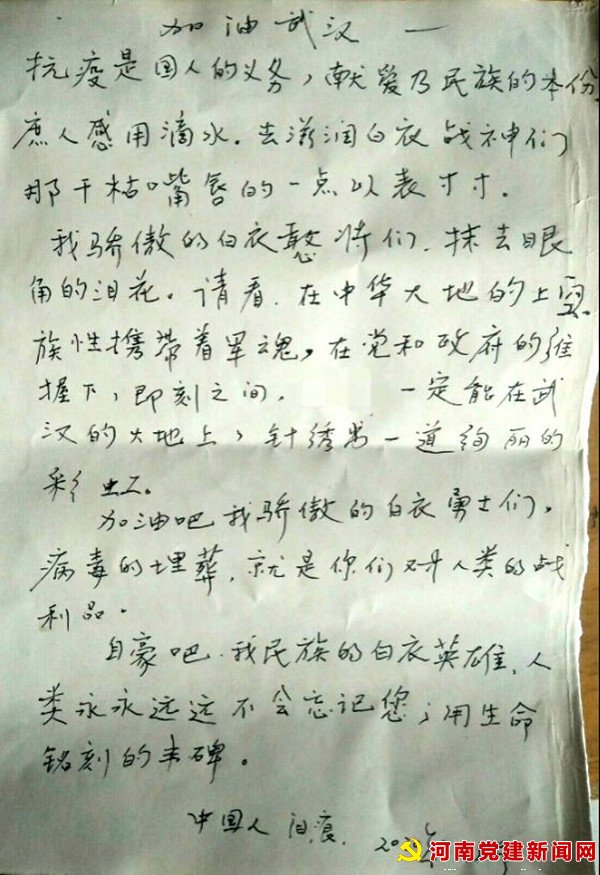 加油武汉 —
抗疫是国人的义务，献爱乃民族的本份
庶人感用滴水．去滋润白衣战神们
那干枯嘴唇的一点以表寸寸．
我骄傲的白衣憨将们．抹去眼
角的泪花。请看．在中华大地的上空
族性携带着军魂，在党和政府的
握下，即刻之间． 一定能在武
汉的大地上，针绣出一道绚丽的
彩虹。
加油吧我骄傲的白衣勇士们。
病毒的埋葬．就是你们对人类的战
利品．
自豪吧．我民族的白衣英雄．人
类永永远远不会忘记您；用生命
铭刻的丰碑。
中国人 泪痕．
河南党建新闻网